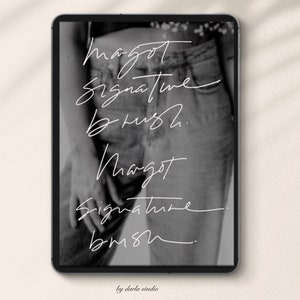 margot
signature
brush.
Margot
signature.
brush.
by darla studio